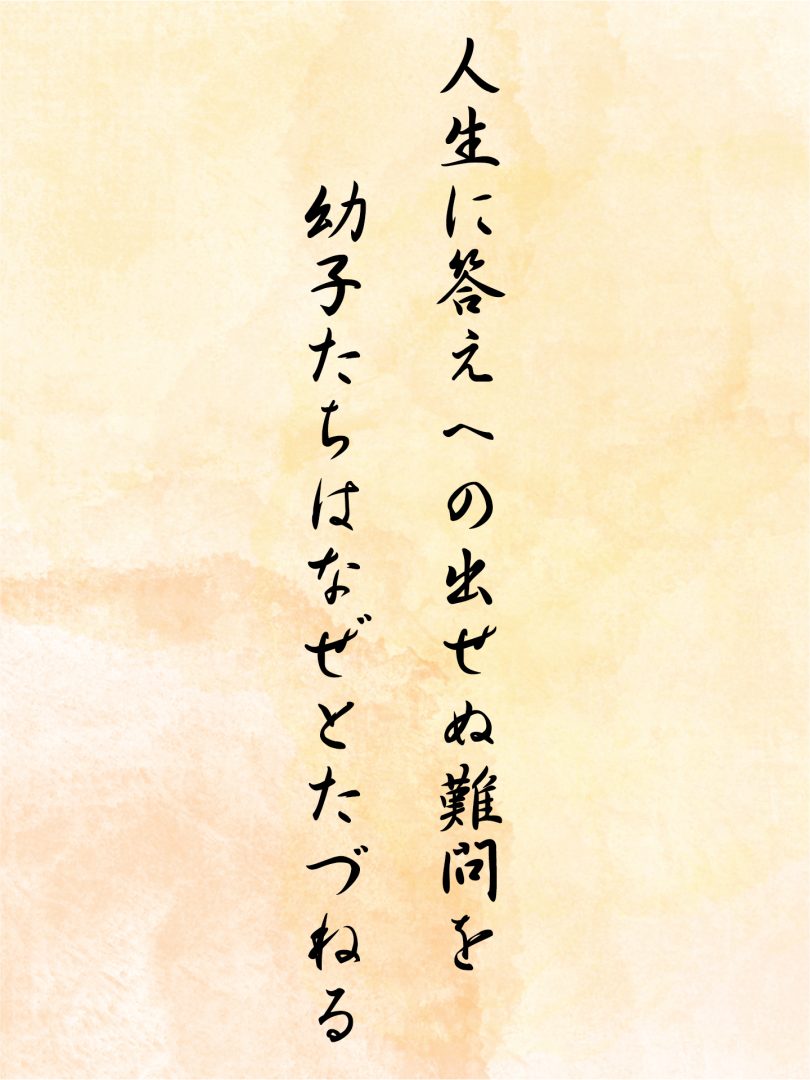 人生に答えへの出せぬ難問を
幼子たちはなぜとたづねる